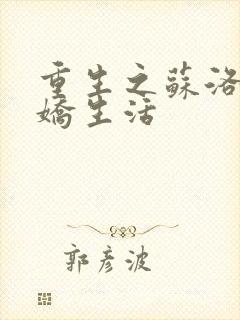 重生之蘇洛
嬌生活
郭彥波